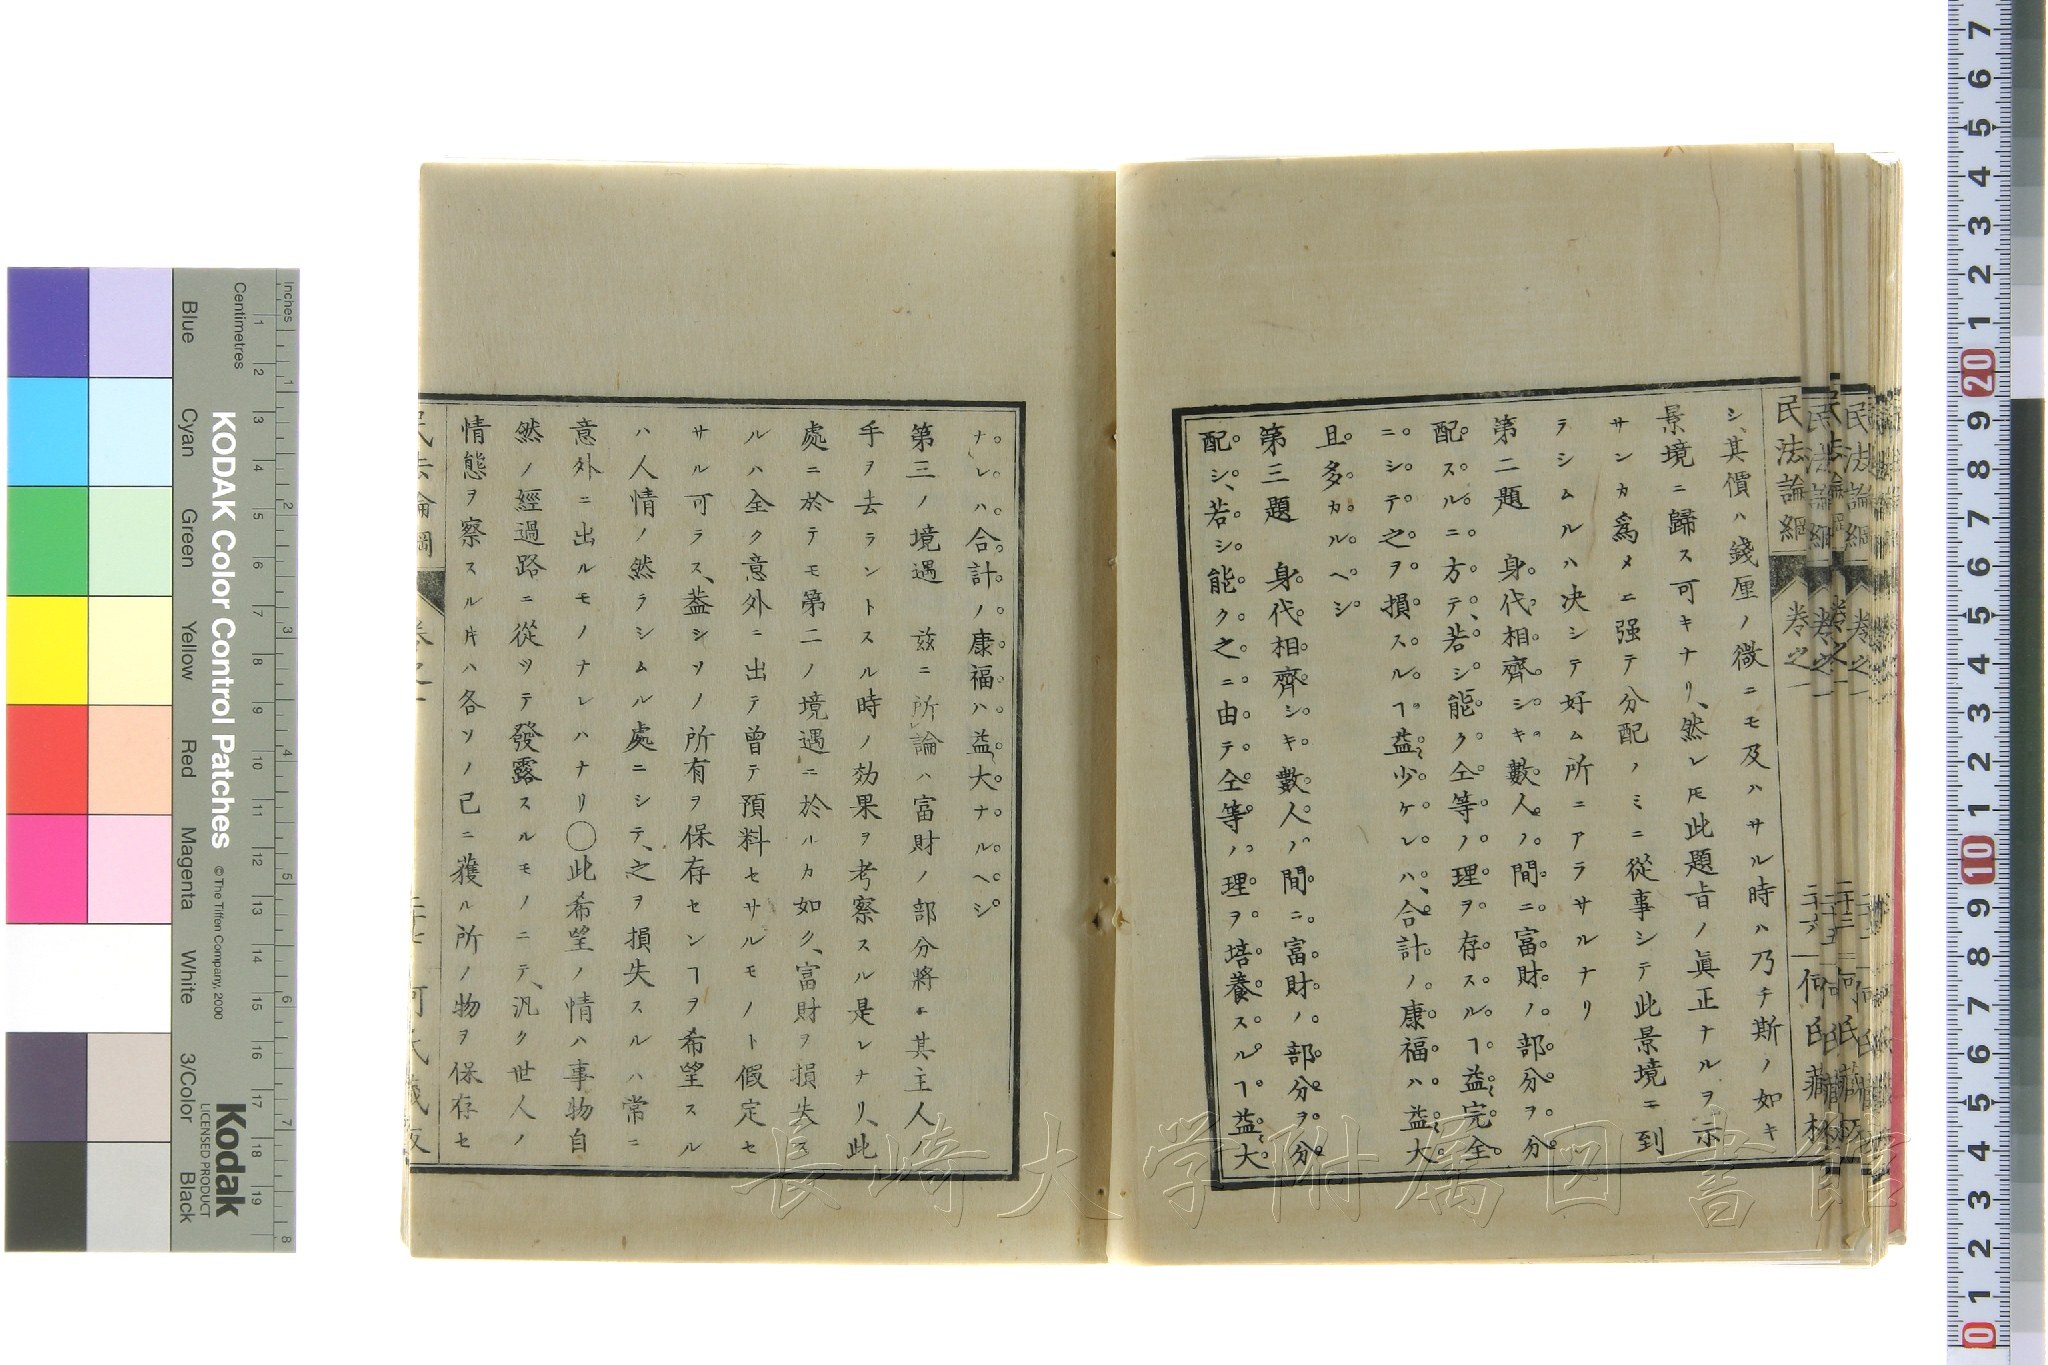 民法論綱
卷之一
二十六
何氏藏板
シ、其價ハ錢厘ノ微ニモ及ハサル時ハ乃チ斯ノ如キ
景境ニ歸ス可キナリ、然レ𪜈此題旨ノ眞正ナルヲ示
サンカ爲メニ强テ分配ノミニ從事シテ此景境ニ到
ラシムルハ决シテ好ム所ニアラサルナリ
第二題 身代相齊シキ數人ノ間ニ富財ノ部分ヲ分
配スルニ方テ、若シ能ク仝等ノ理ヲ存スルヿ益完全
ニシテ之ヲ損スルヿ益少ケレハ、合計ノ康福ハ益大
且多カルヘシ
第三題 身代相齊シキ數人ノ間ニ富財ノ部分ヲ分
配シ、若シ能ク之ニ由テ仝等ノ理ヲ培養スルヿ益大
ナレハ合計ノ康福ハ益大ナルヘシ
第三ノ境遇 玆ニ所論ハ富財ノ部分將ニ其主人ノ
手ヲ去ラントスル時ノ効果ヲ考察スル是レナリ、此
處ニ於テモ第二ノ境遇ニ於ルカ如ク、富財ヲ損失ス
ルハ全ク意外ニ出テ曾テ預料セサルモノト假定セ
サル可ラス、葢シソノ所有ヲ保存センヿヲ希望スル
ハ人情ノ然ラシムル處ニシテ、之ヲ損失スルハ常ニ
意外ニ出ルモノナレハナリ○此希望ノ情ハ事物自
然ノ經過路ニ從ツテ發露スルモノニテ、汎ク世人ノ
情態ヲ察スル片ハ各ソノ己ニ獲ル所ノ物ヲ保存セ
KODAK Color Control Patches
© The Tiffen Company, 2000
Kodak
LICENSED PRODUCT
Inches
Centimetres
Blue
Cyan
Green
Yellow
Red
Magenta
White
3/Color
Black
長崎大学附属図書館